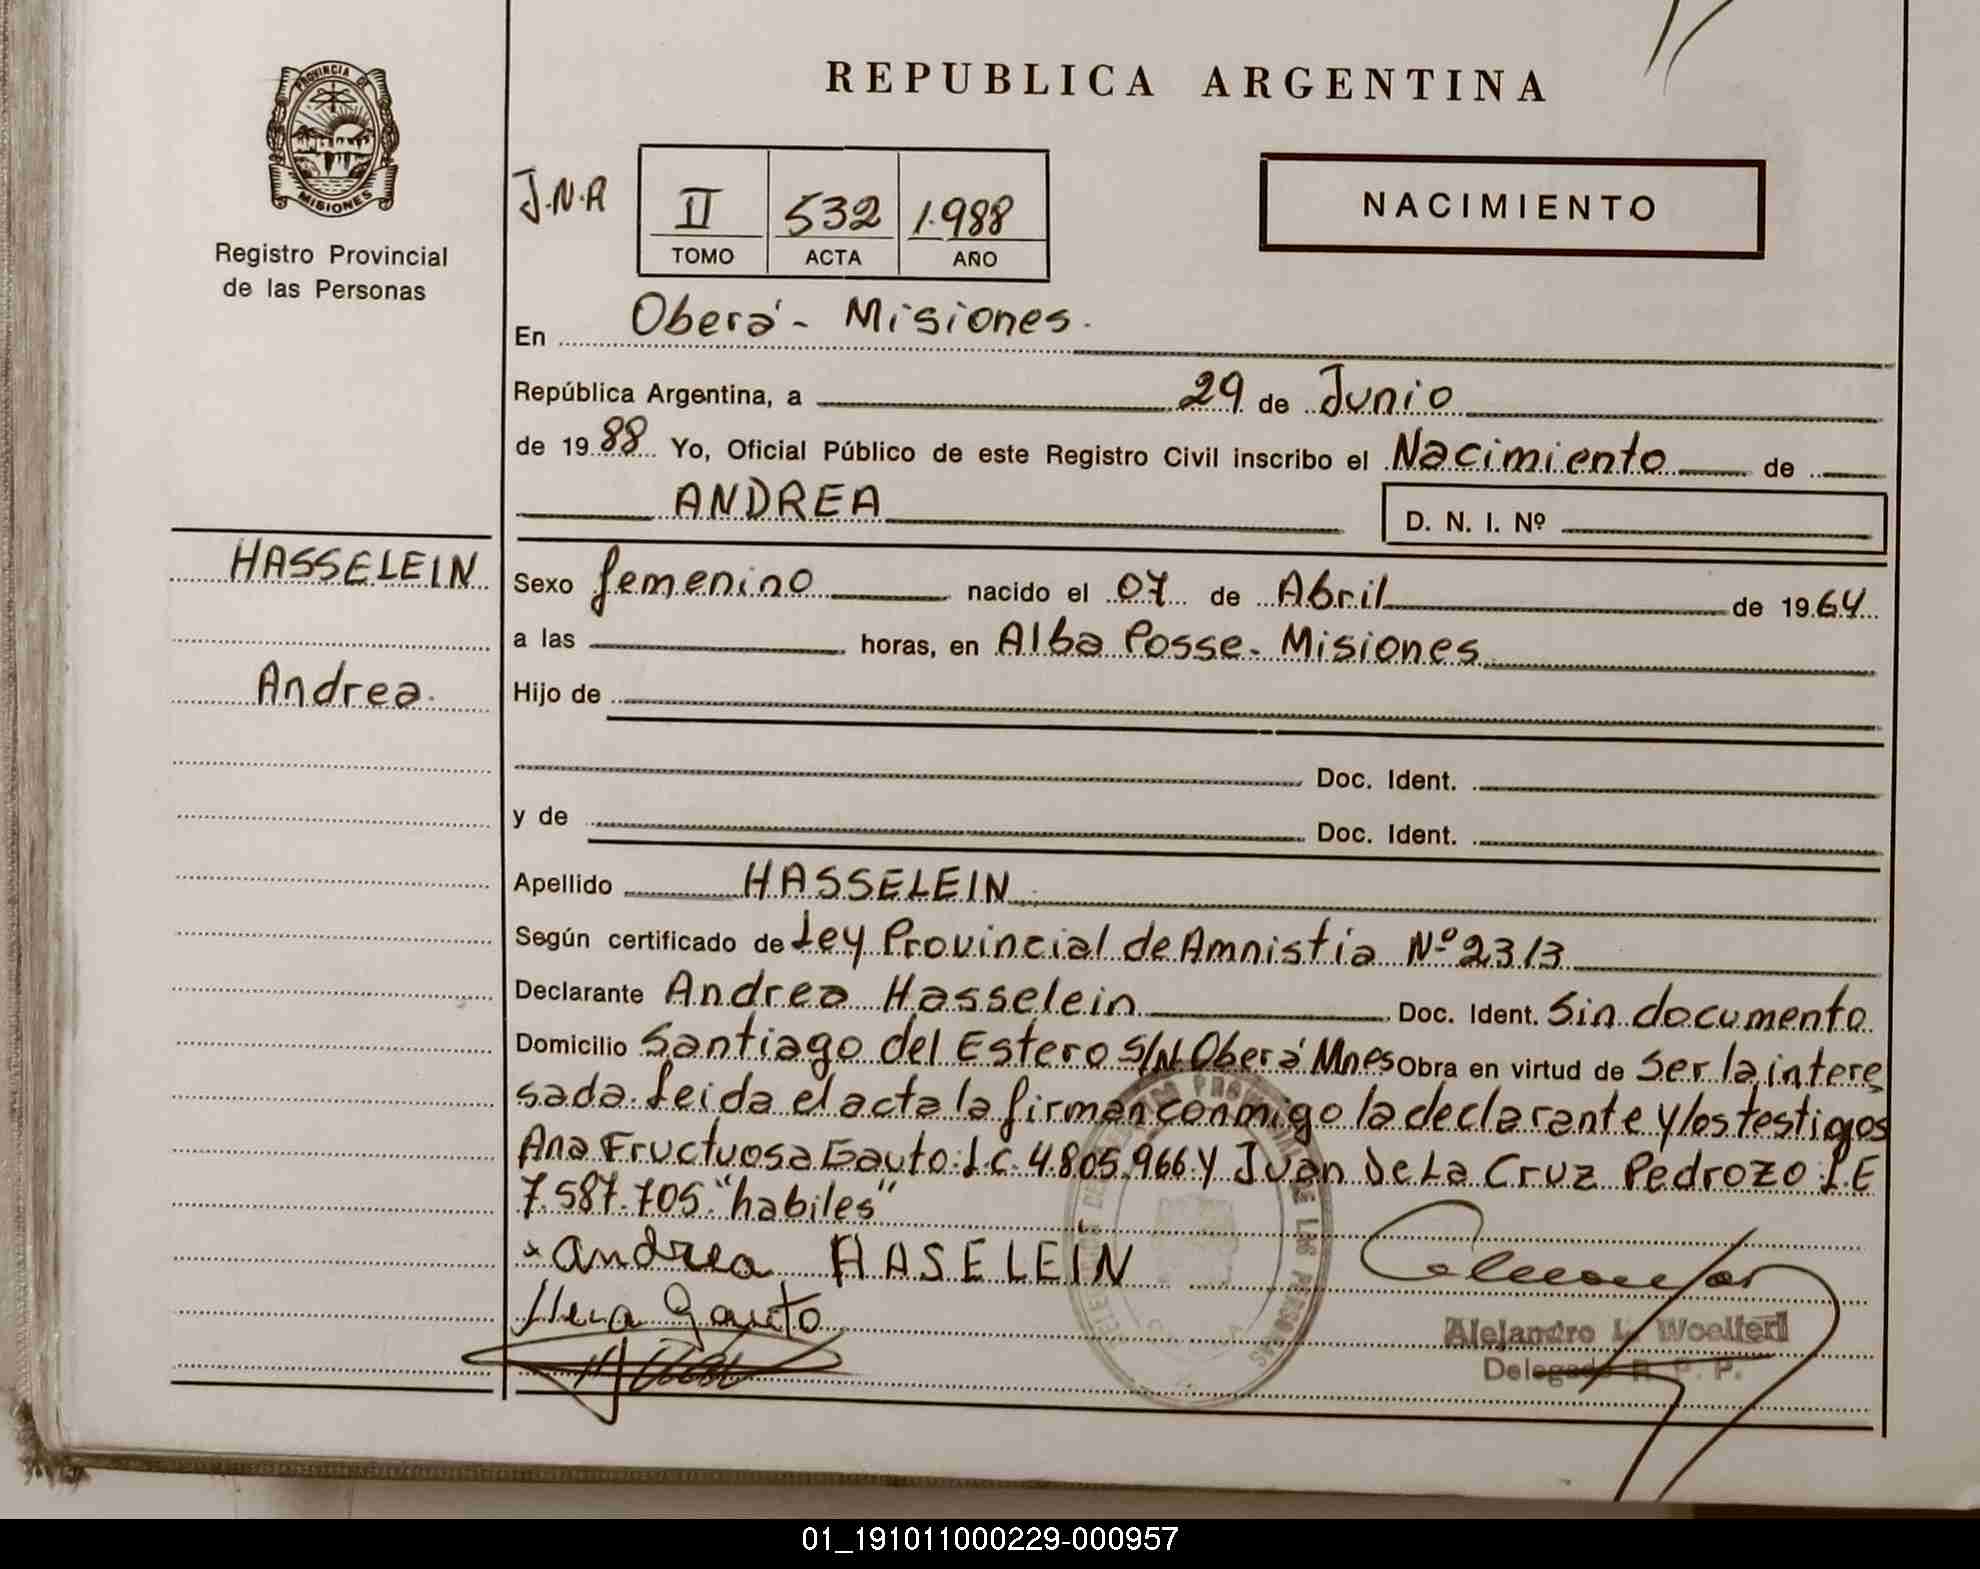 REPUBLICA ARGENTINA
PROVINCIA DE
MISIONES
Registro Provincial
de las Personas
J.N.A
II 532 1.988
TOMO ACTA AÑO
NACIMIENTO
En Oberá - Misiones.
República Argentina, a 29 de Junio
de 19 88 Yo, Oficial Público de este Registro Civil inscribo el Nacimiento de
ANDREA D. N. I. Nº
HASSELEIN
Andrea.
Sexo femenino nacido el 07 de Abril de 19 64
a las horas, en Alba Posse - Misiones
Hijo de
Doc. Ident.
y de Doc. Ident.
Apellido HASSELEIN
Según certificado de Ley Provincial de Amnistia Nº 2313
Declarante Andrea Hasselein Doc. Ident. Sin documento
Domicilio Santiago del Estero S/N Oberá Mnes Obra en virtud de Ser la intere
sada. Leida el acta la firman conmigo la declarante y los testigos
Ana Fructuosa Gauto L.C. 4.805.966 y Juan De La Cruz Pedrozo L.E
7.587.705 "habiles"
x andrea HASELEIN
Gauto
Alejandro L. Woelferl
Delegado R. P. P.
01_191011000229-000957